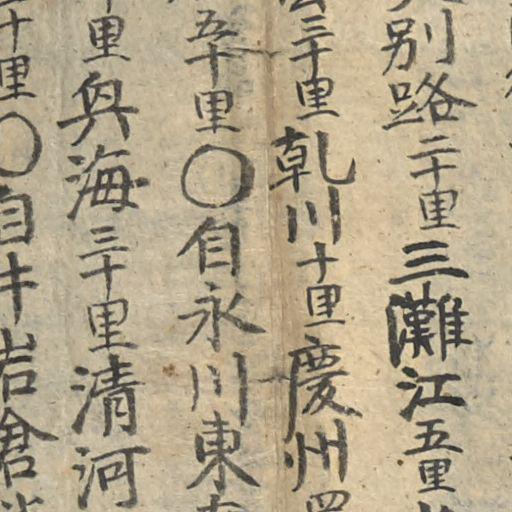 別路二十里三灘江五里
三十里乹川十里慶州
五十里○自永川東
里興海三十里清河
十里○自牛岩倉